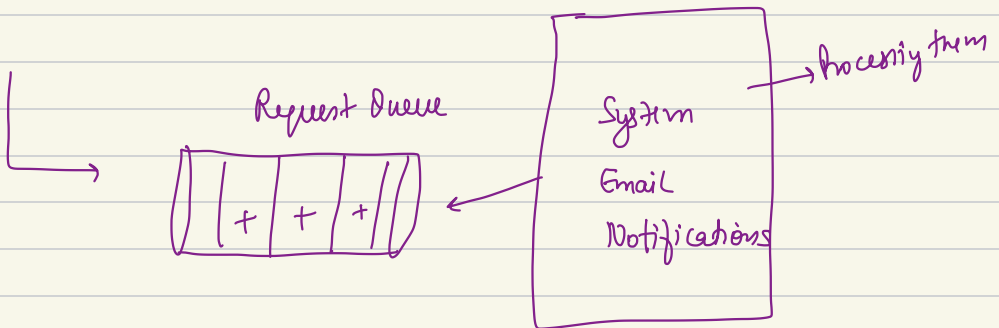 Request Queue
+ + +
System
Email
Notifications
Processing them